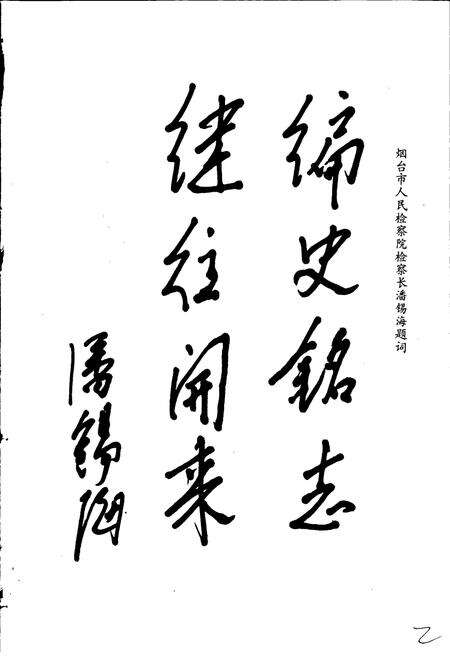 烟台市人民检察院检察长潘锡海题词
编史铭志
继往开来
潘锡海
乙